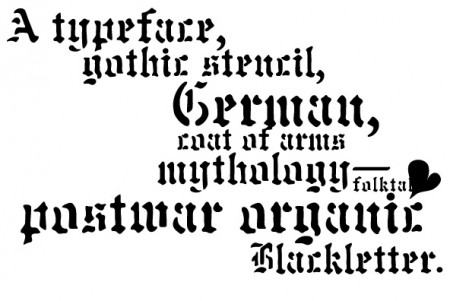 A typeface,
gothic stencil,
German,
coat of arms
mythology—
folktal
postwar organic
Blackletter.